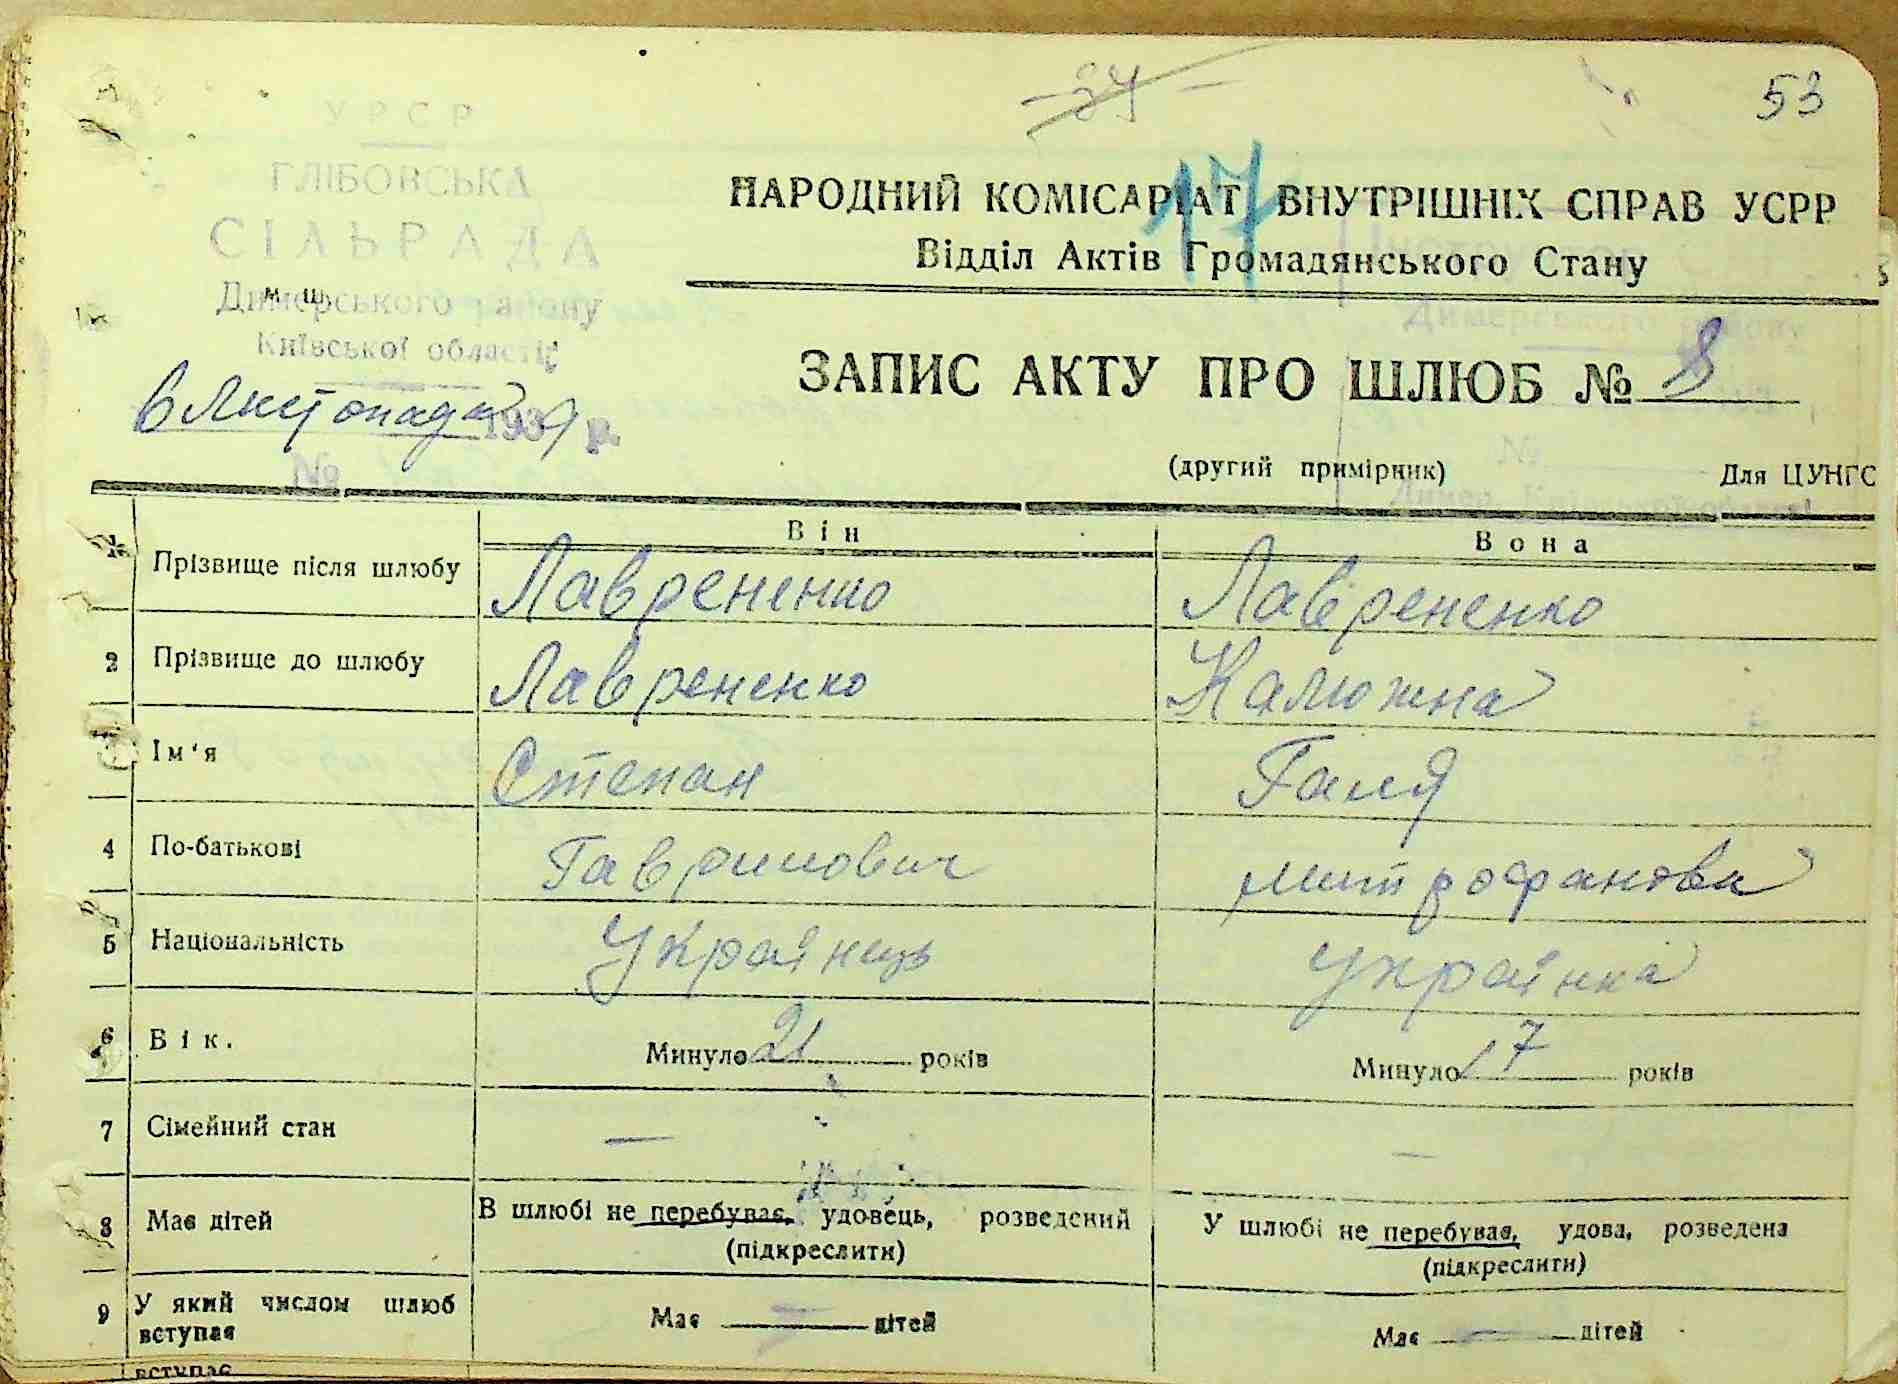 24
53
УРСР
ГЛІБОВСЬКА
СІЛЬРАДА
Димерського району
Київської області
м. ш.
17
НАРОДНИЙ КОМІСАРІАТ ВНУТРІШНІХ СПРАВ УСРР
Відділ Актів Громадянського Стану
ЗАПИС АКТУ ПРО ШЛЮБ № 8
Листопада 193 р.
№
(другий примірник) Для ЦУНГС
Він Вона
1 Прізвище після шлюбу Лаврененко Лаврененко
2 Прізвище до шлюбу Лаврененко Калюжна
Ім'я Степан Галя
4 По-батькові Гаврилович Митрофановна
5 Національність Українець Українка
6 Вік. Минуло 21 років Минуло 17 років
7 Сімейний стан — —
8 Має дітей В шлюбі не перебуває, удовець, розведений У шлюбі не перебуває, удова, розведена
(підкреслити) (підкреслити)
9 У який числом шлюб вступає Має — дітей Має — дітей
вступає